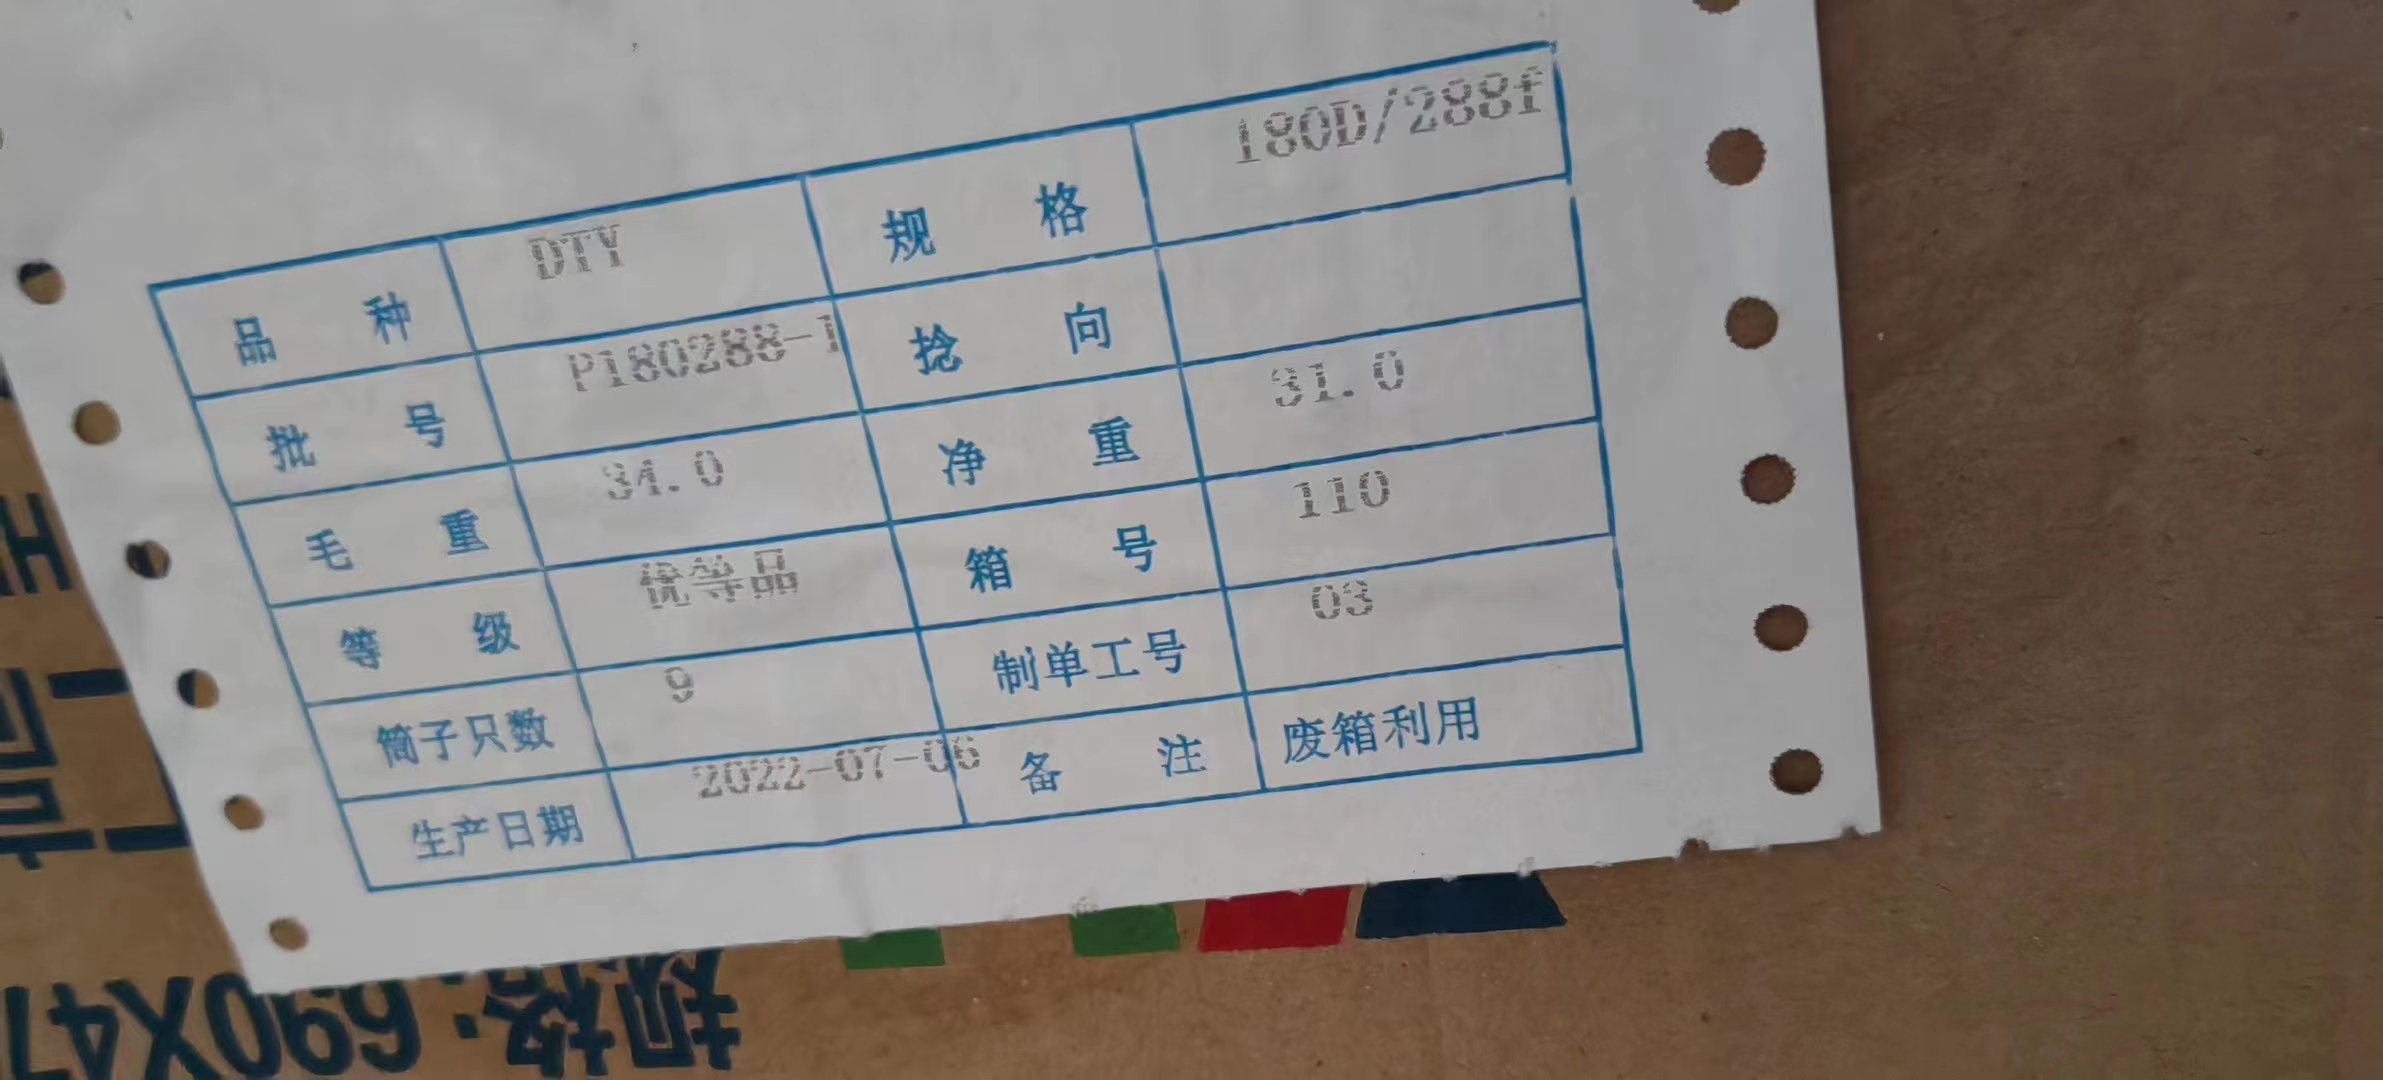 品 种 DTY 规 格 180D/288f
批 号 P180288-1 捻 向
毛 重 34.0 净 重 31.0
等 级 优等品 箱 号 110
筒子只数 9 制单工号 03
生产日期 2022-07-06 备 注 废箱利用
规格:690X47